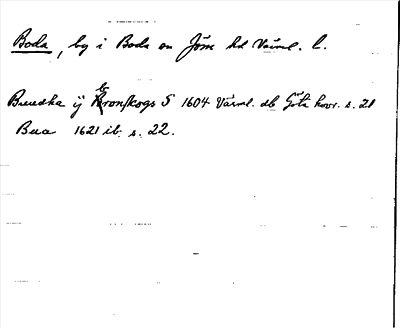 Boda, by i Boda sn Jösse hd Värml. l.
Buudha ij Bronskogs S 1604 Värml. älb Göta hovr. s. 21
Bua 1621 ib. s. 22.